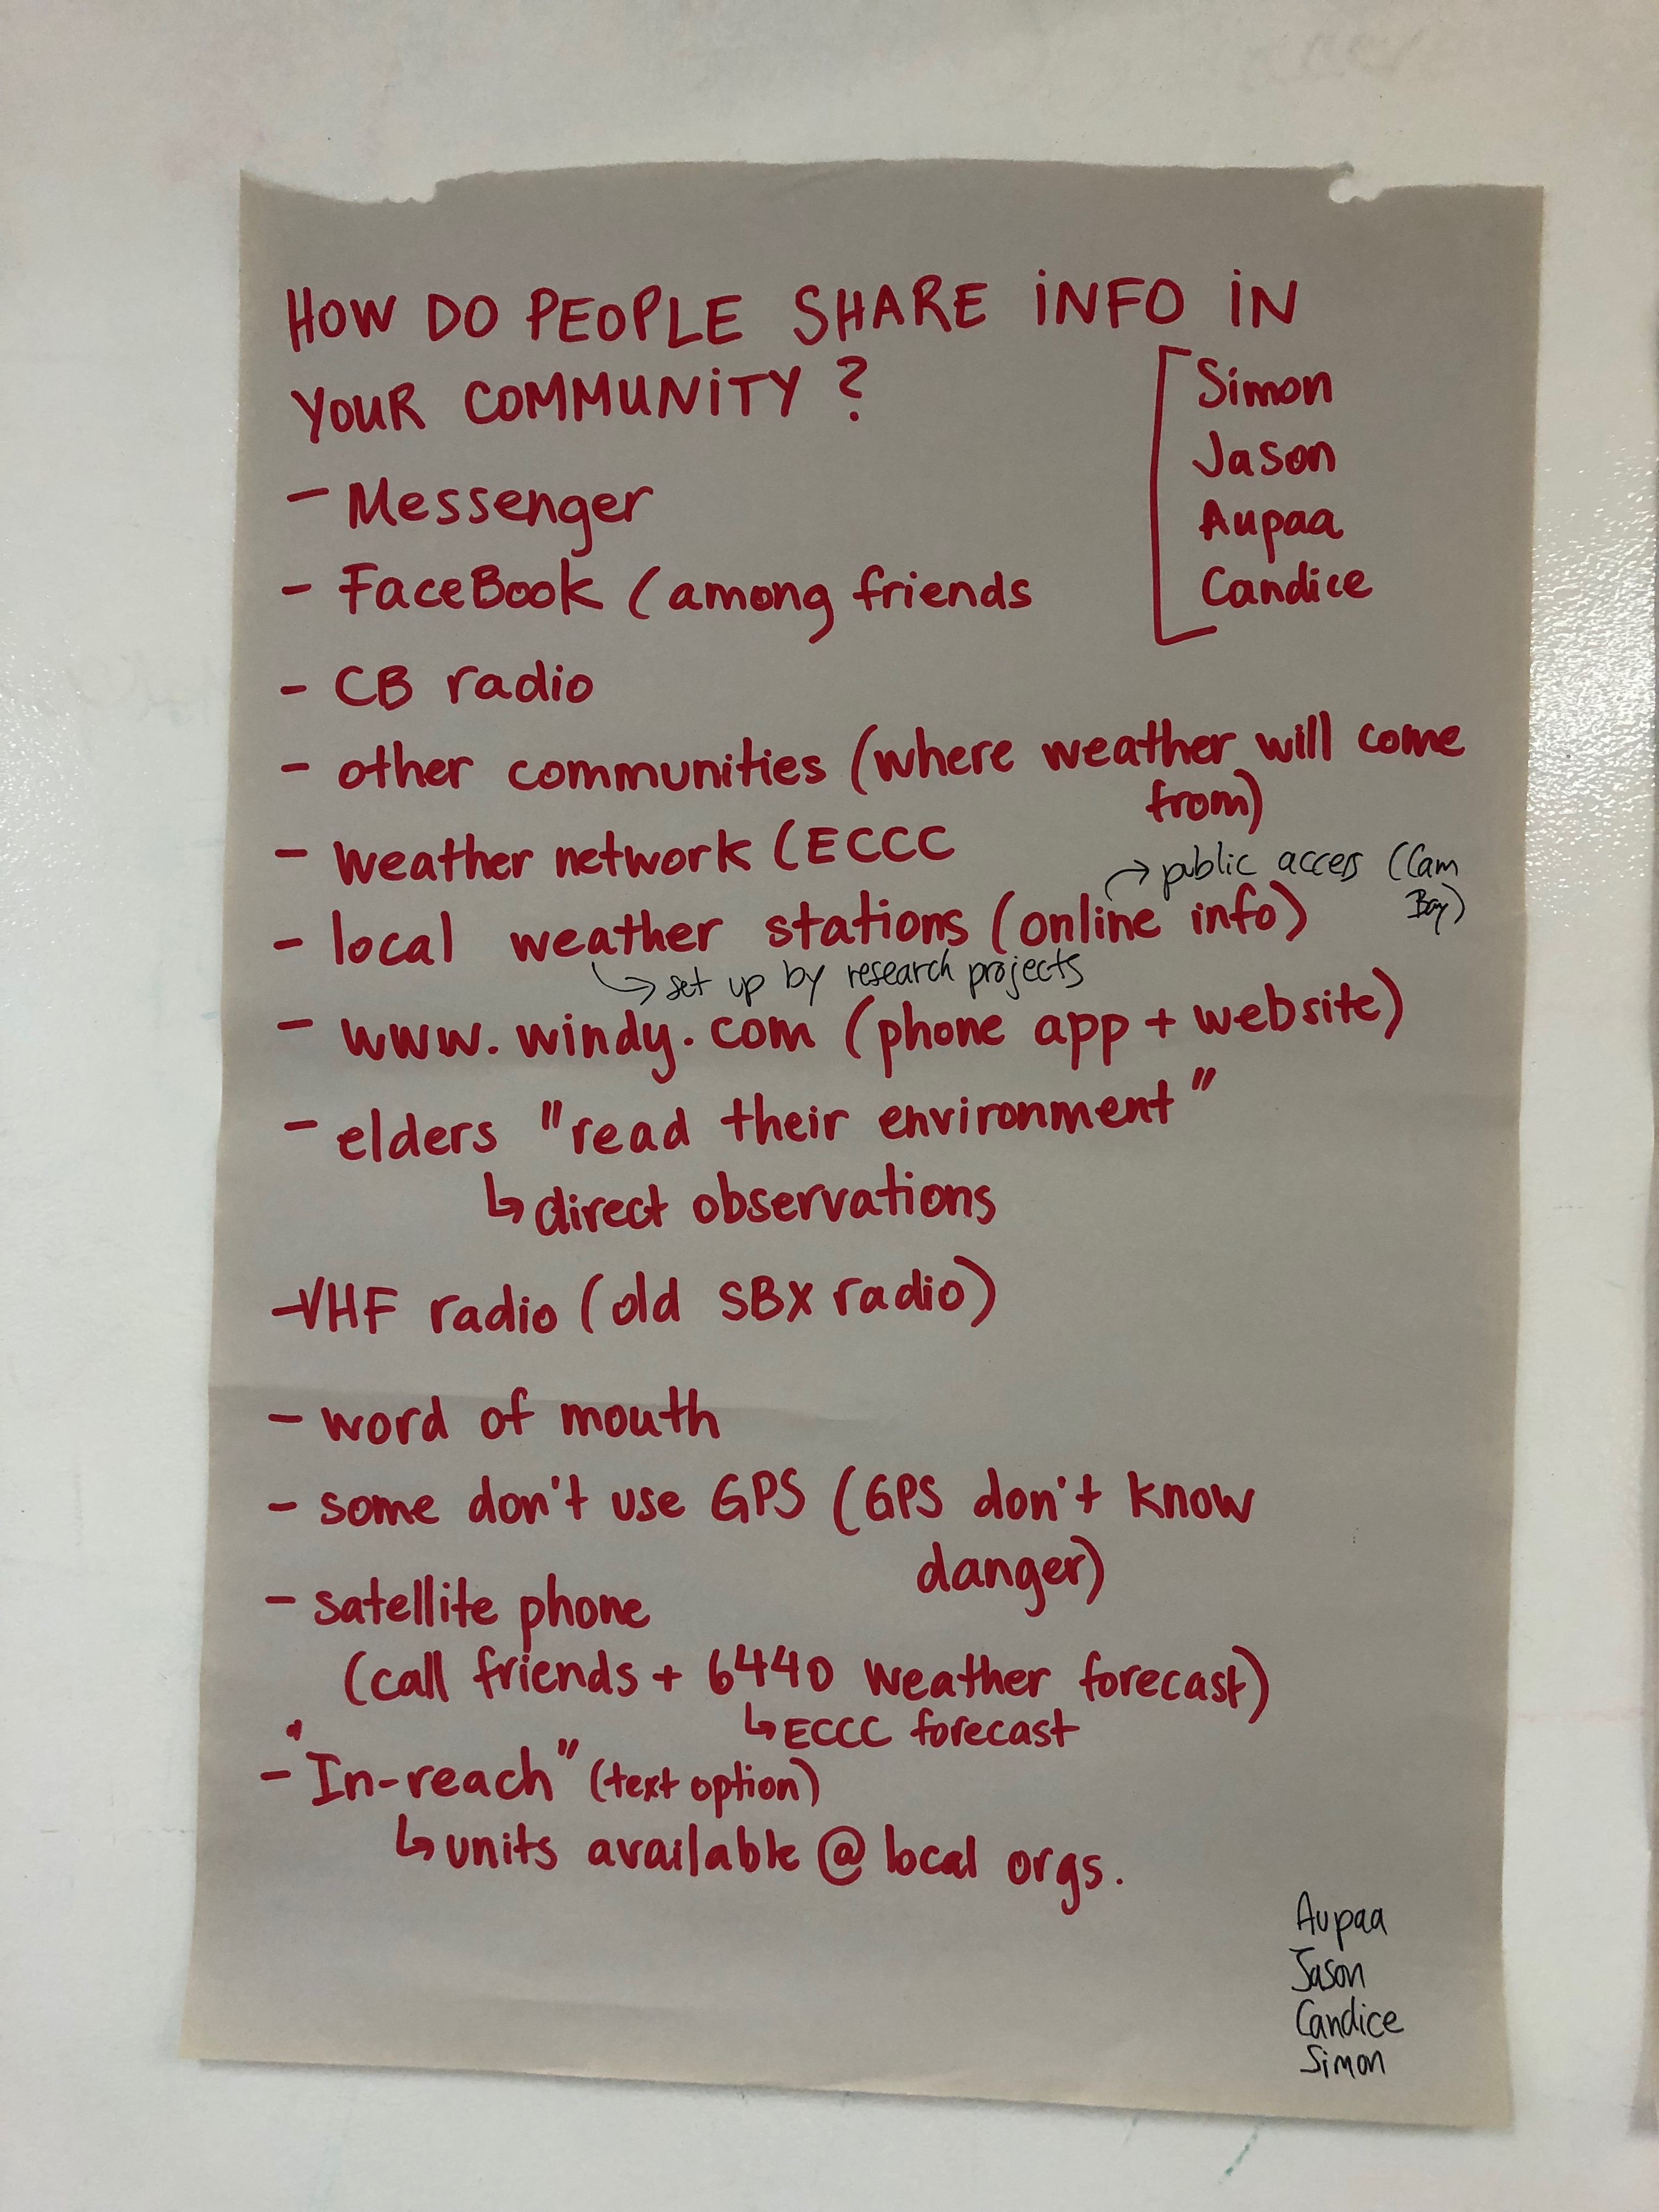 HOW DO PEOPLE SHARE INFO IN
YOUR COMMUNITY?
Simon
Jason
Aupaa
Candice
- Messenger
- FaceBook (among friends
- CB radio
- other communities (where weather will come
from)
- weather network (ECCC
→ public access (Cam
Bay)
- local weather stations (online info)
↳ set up by research projects
- www.windy.com (phone app + website)
- elders "read their environment"
↳ direct observations
- VHF radio (old SBX radio)
- word of mouth
- some don't use GPS (GPS don't know
danger)
- satellite phone
(call friends + 6440 weather forecast)
↳ ECCC forecast
- "In-reach" (text option)
↳ units available @ local orgs.
Aupaa
Jason
Candice
Simon